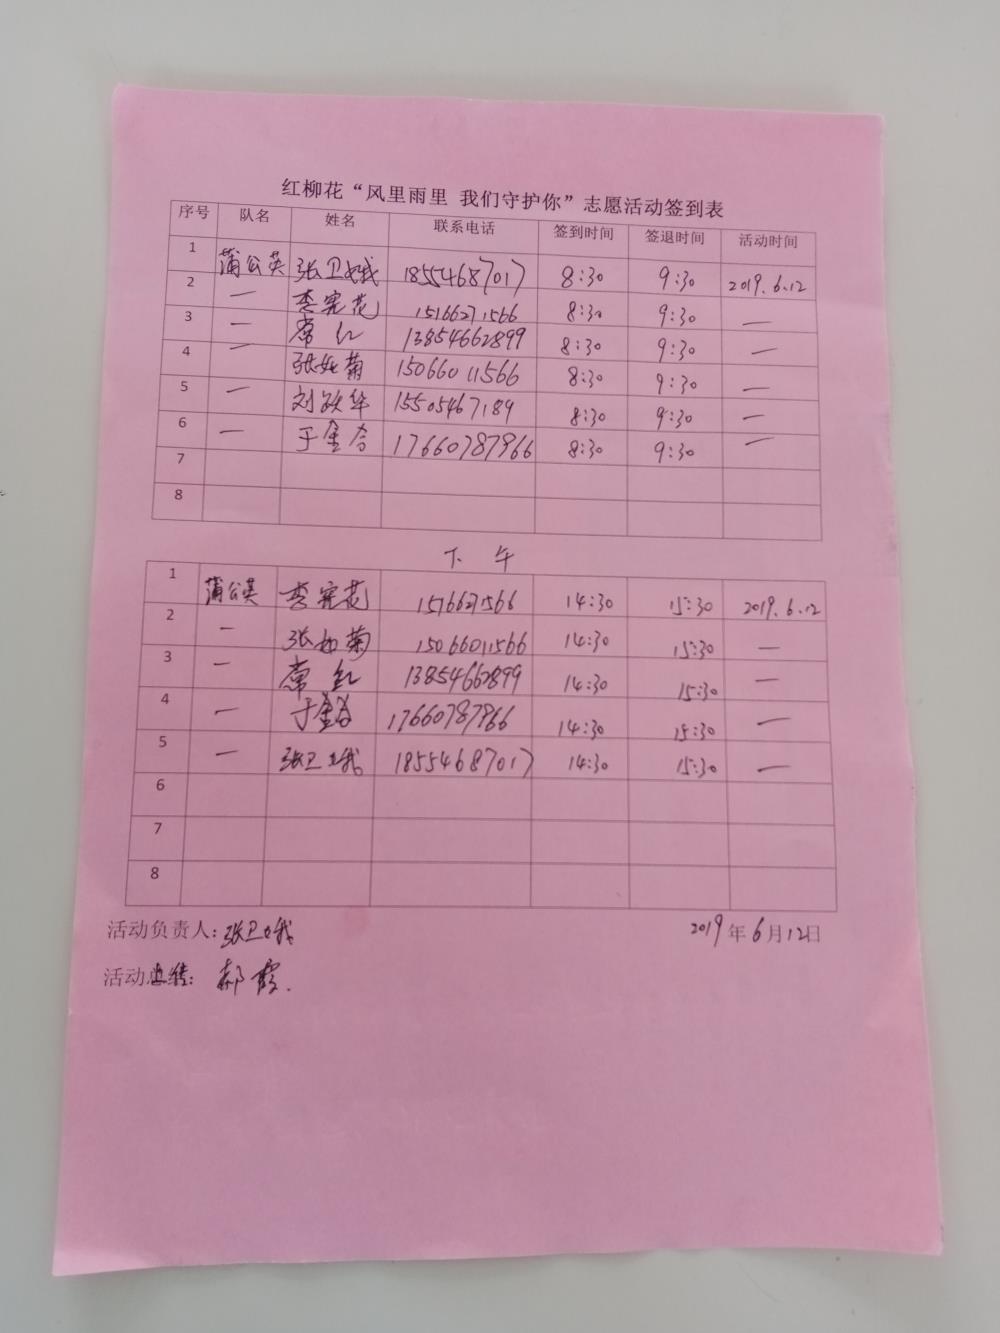 红柳花“风里雨里 我们守护你”志愿活动签到表
序号 队名 姓名 联系电话 签到时间 签退时间 活动时间
1 蒲公英 张卫娥 18554687017 8:30 9:30 2019.6.12
2 一 李宪花 15166271566 8:30 9:30 一
3 一 常红 13854662899 8:30 9:30 一
4 一 张如菊 15066011566 8:30 9:30 一
5 一 刘跃华 15505467189 8:30 9:30 一
6 一 于金谷 17660787966 8:30 9:30 一
7
8
下午
1 蒲公英 李宪花 1516627566 14:30 15:30 2019.6.12
2 一 张如菊 15066011566 14:30 15:30 一
3 一 常红 13854662899 14:30 15:30 一
4 一 于金谷 17660787966 14:30 15:30 一
5 一 张卫娥 18554687017 14:30 15:30 一
6
7
8
活动负责人：张卫娥 2019年6月12日
活动总结：郝霞.